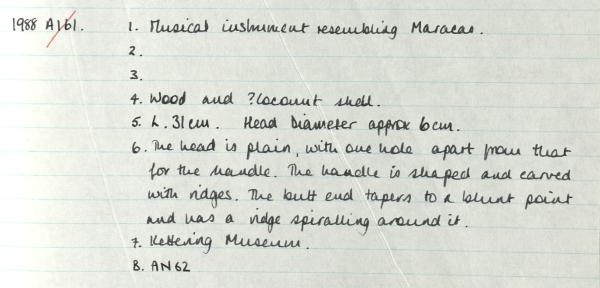 1988 A161. 1. Musical instrument resembling Maracas.
2.
3.
4. Wood and ?Coconut shell.
5. L. 31cm. Head Diameter approx 6cm.
6. The head is plain, with one hole apart from that
for the handle. The handle is shaped and carved
with ridges. The butt end tapers to a blunt point
and has a ridge spiralling around it.
7. Kettering Museum.
8. AN62